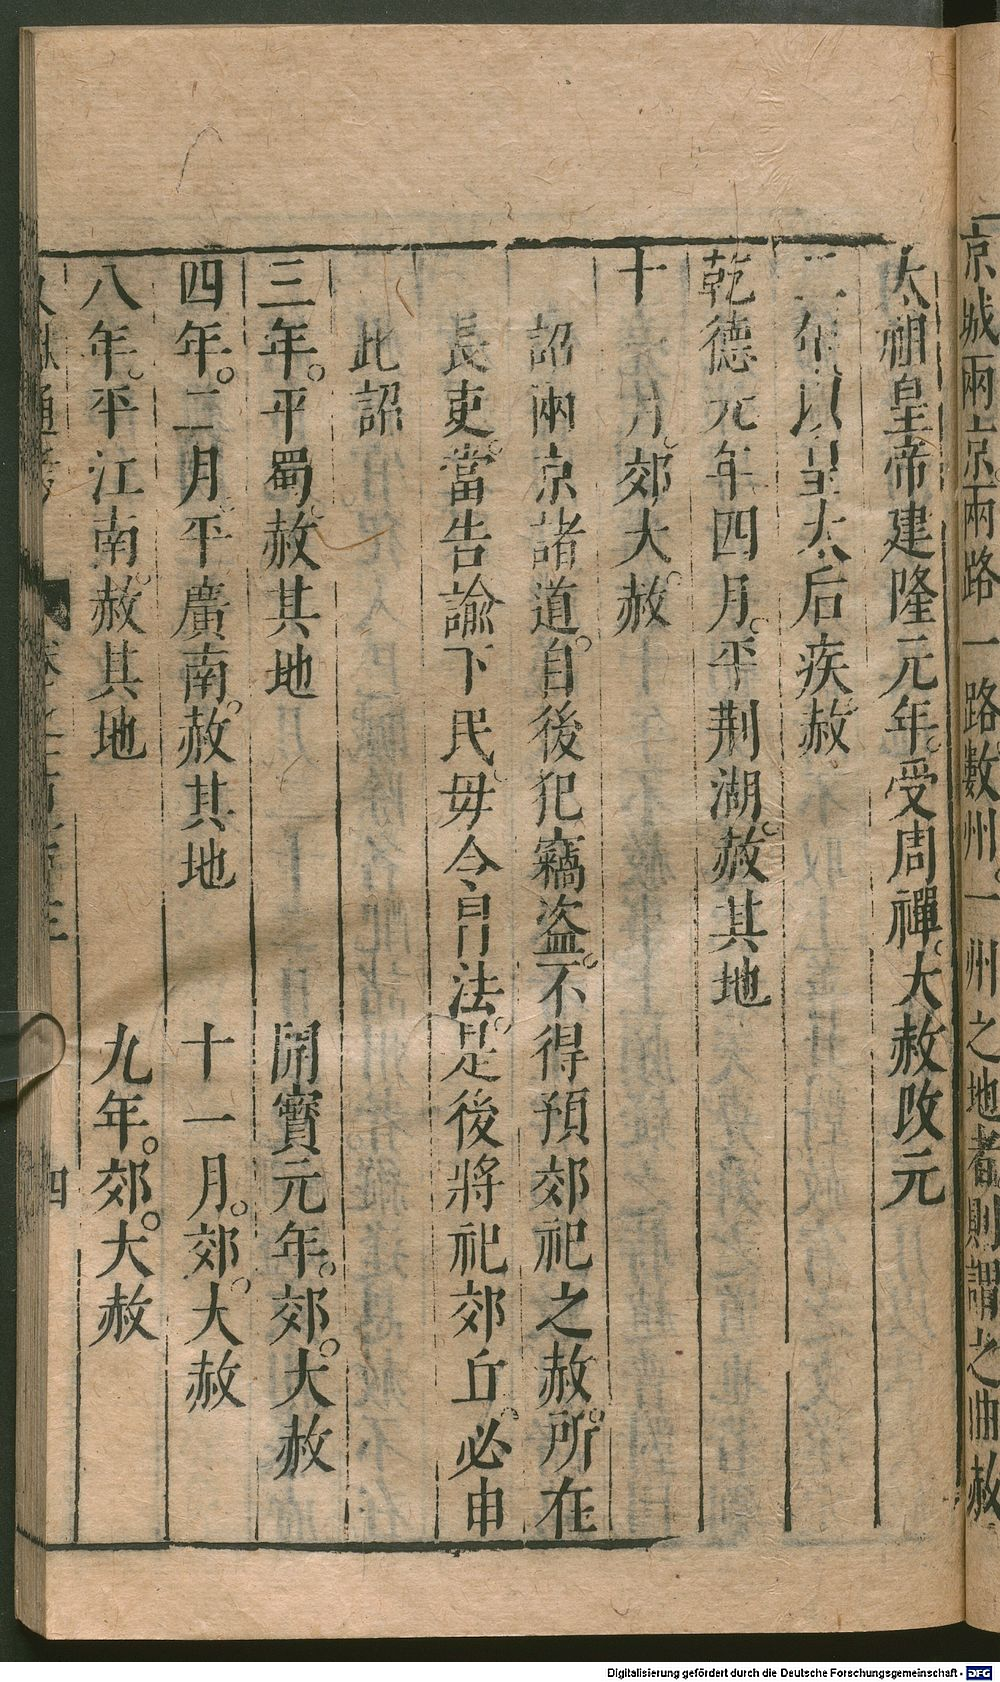 京城兩京兩路一路數州。一州之地者則謂之曲赦
太祖皇帝建隆元年。受周禪。大赦改元
二年以皇太后疾赦
乾德元年四月。平荆湖。赦其地
十一月。郊。大赦
詔兩京諸道。自後犯竊盜。不得預郊祀之赦。所在
長吏。當告諭下民。毋令冒法。是後將祀郊丘。必申
此詔
三年。平蜀。赦其地
開寶元年。郊。大赦
四年。二月。平廣南。赦其地
十一月。郊。大赦
八年。平江南。赦其地
九年。郊。大赦
四
Digitalisierung gefördert durch die Deutsche Forschungsgemeinschaft - DFG